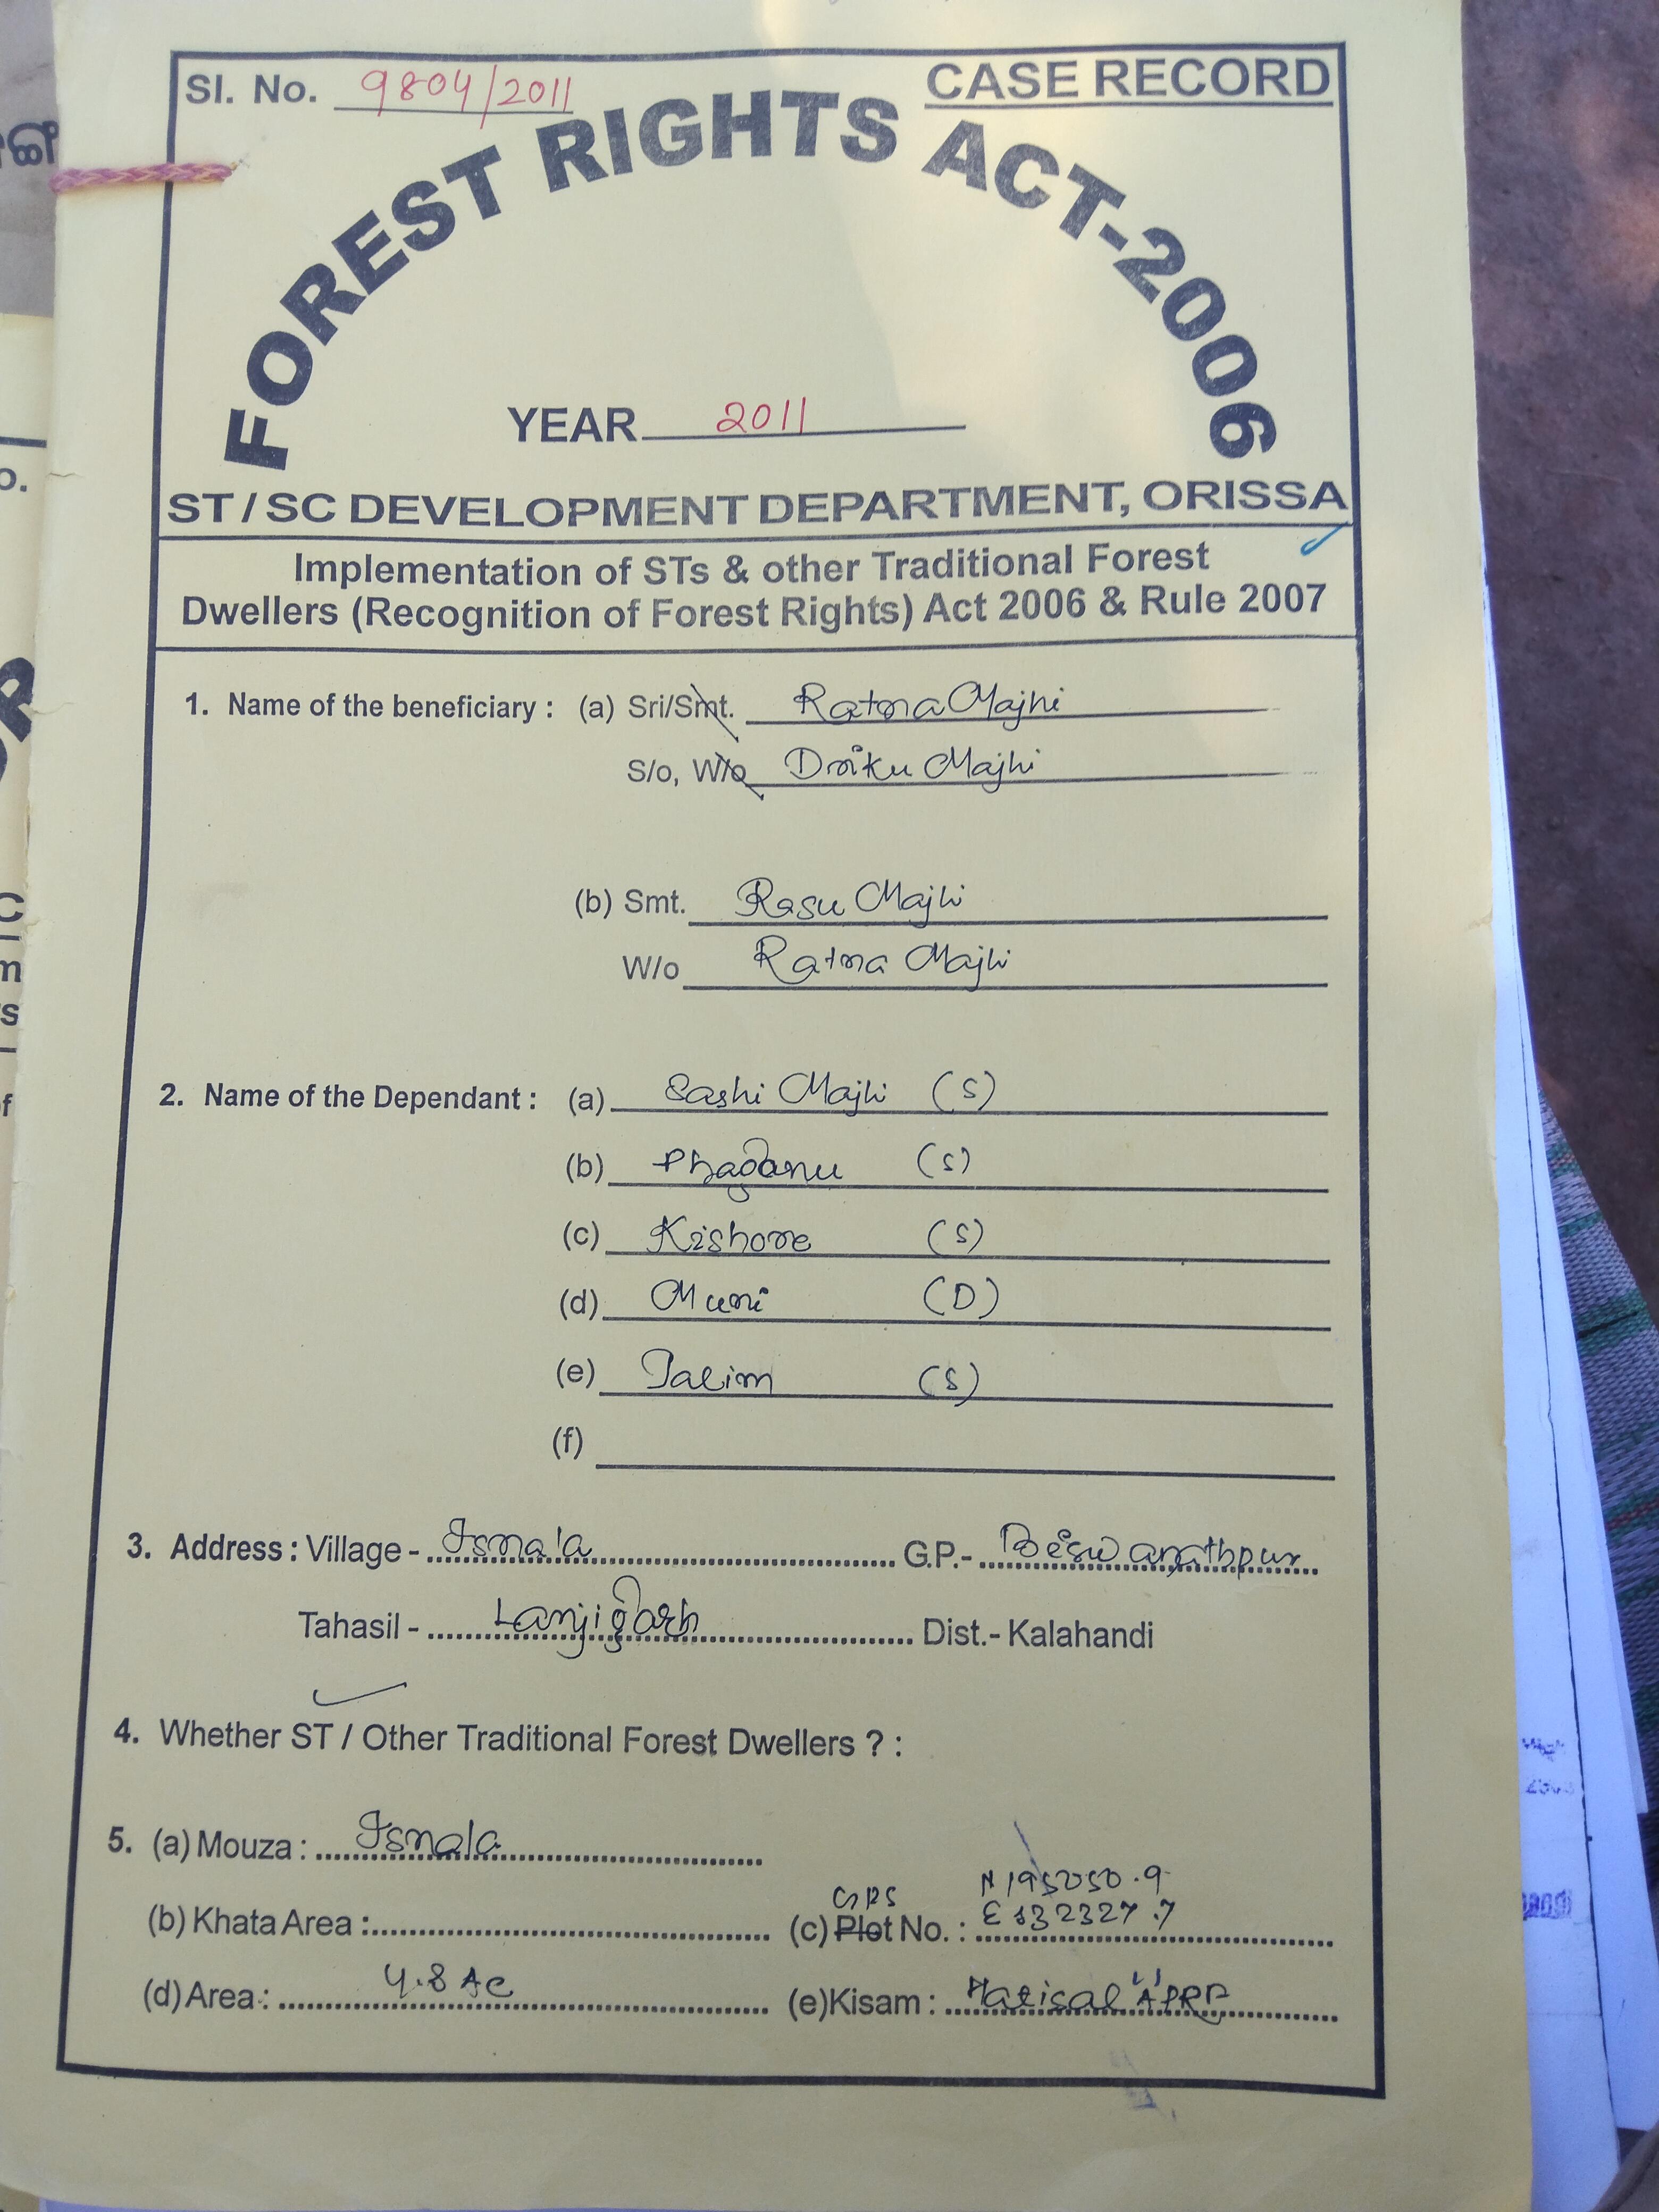 Sl. No. 9804/2011
CASE RECORD
FOREST RIGHTS ACT-2006
YEAR 2011
ST / SC DEVELOPMENT DEPARTMENT, ORISSA
Implementation of STs & other Traditional Forest
Dwellers (Recognition of Forest Rights) Act 2006 & Rule 2007
1. Name of the beneficiary : (a) Sri/Smt. Ratna Majhi
S/o, W/o Driku Majhi
(b) Smt. Rasu Majhi
W/o Ratna Majhi
2. Name of the Dependant : (a) Sashi Majhi (S)
(b) Phaganu (S)
(c) Kishore (S)
(d) Muni (D)
(e) Jalim (S)
(f)
3. Address : Village - Isnala G.P.- Biswanathpur
Tahasil - Lanjigarh Dist.- Kalahandi
4. Whether ST / Other Traditional Forest Dwellers ? :
5. (a) Mouza : Isnala
(b) Khata Area : (c) Plot No. : GPS N 195050.9
E 832327.7
(d) Area : 4.8 Ac (e) Kisam : Matisal "APRF